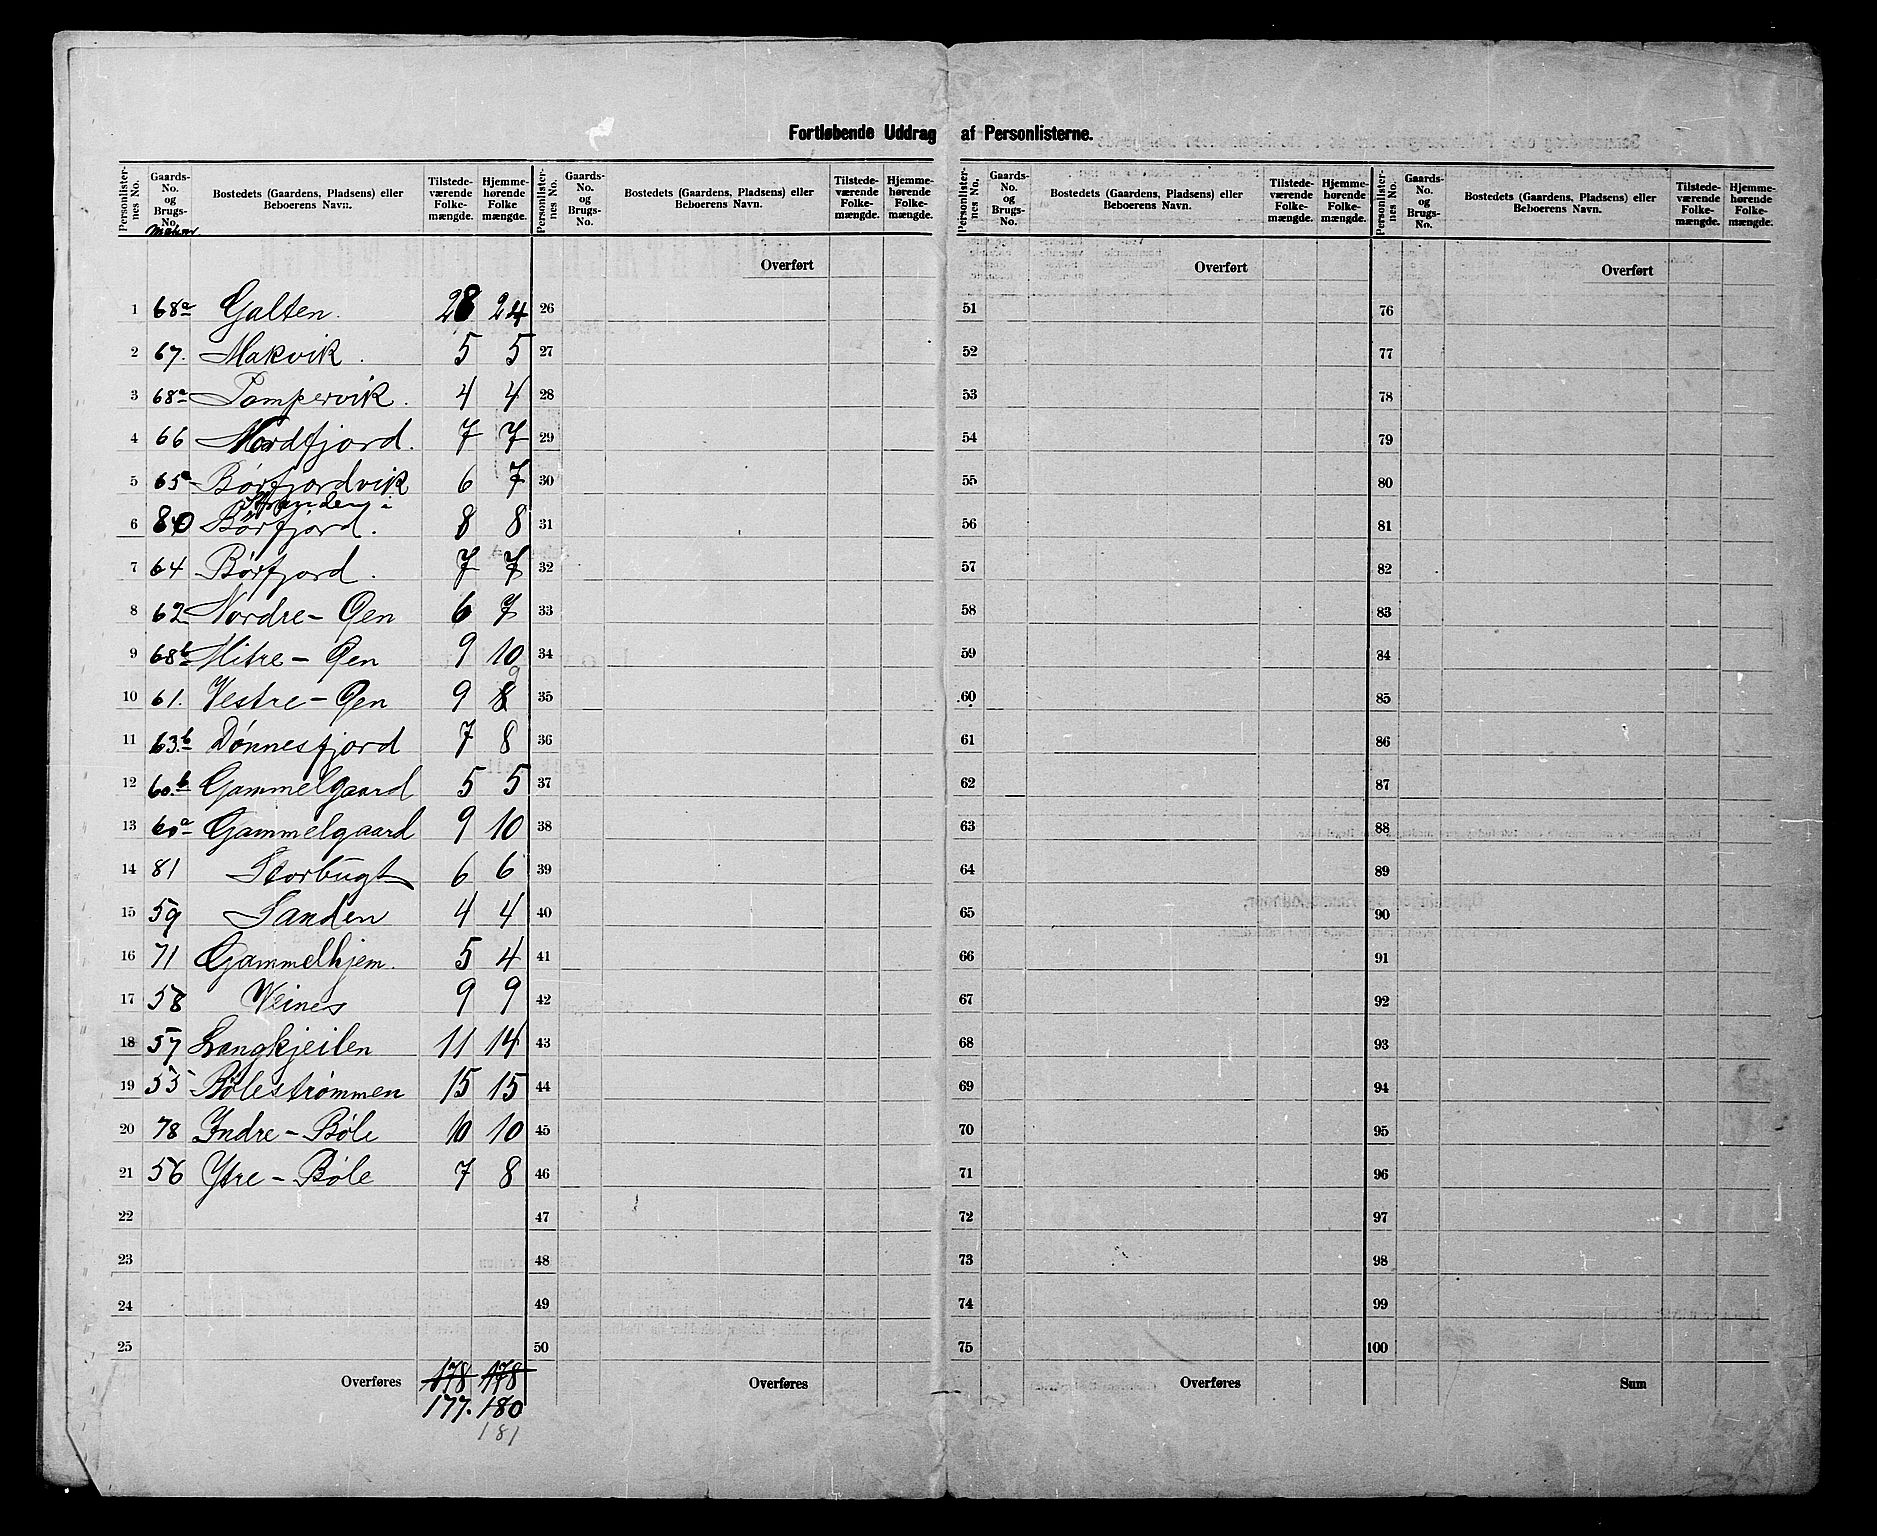 Fortløbende Uddrag af Personlisterne.
Personlister-nes No. | Gaards-No. og Brugs-No. | Bostedets (Gaardens, Pladsens) eller Beboerens Navn. | Tilstede-værende Folke-mængde. | Hjemme-hørende Folke mængde. | Personlister-nes No. | Gaards-No. og Brugs-No. | Bostedets (Gaardens, Pladsens) eller Beboerens Navn. | Tilstede-værende Folke-mængde. | Hjemme-hørende Folke-mængde. | Personlister-nes No. | Gaards-No. og Brugs-No. | Bostedets (Gaardens, Pladsens) eller Beboerens Navn. | Tilstede-værende Folke-mængde. | Hjemme-hørende Folke-mængde. | Personlister-nes No. | Gaards-No. og Brugs-No. | Bostedets (Gaardens, Pladsens) eller Beboerens Navn. | Tilstede-værende Folke-mængde. | Hjemme-hørende Folke-mængde.
Matr.nr.
Overført Overført Overført
1 68a Galten. 28 24 26 51 76
2 67. Makvik. 5 5 27 52 77
3 68a Pampervik. 4 4 28 53 78
4 66 Nordfjord. 7 7 29 54 79
5 65a Børfjordvik 6 7 30 55 80
Stranden i
6 80 Børfjord. 8 8 31 56 81
7 64 Børfjord. 7 7 32 57 82
8 62 Nordre-Øen 6 7 33 58 83
9 68b Mitre-Øen 9 10 34 59 84
9
10 61. Vestre-Øen 9 8 35 60 85
11 63.b Dønnesfjord 7 8 36 61 86
12 60.b Gammelgaard 5 5 37 62 87
13 60a Gammelgaard 9 10 38 63 88
14 81 Storbugt 6 6 39 64 89
15 59 Sanden 4 4 40 65 90
16 71 Gammelhjem. 5 4 41 66 91
17 58 Veines 9 9 42 67 92
18 57 Langkjeilen 11 14 43 68 93
19 55 Bølestrømmen 15 15 44 69 94
20 78 Indre-Bøle 10 10 45 70 95
21 56 Ytre-Bøle 7 8 46 71 96
22 47 72 97
23 48 73 98
24 49 74 99
25 50 75 100
Overføres 178 178 Overføres Overføres Sum
177. 180
181